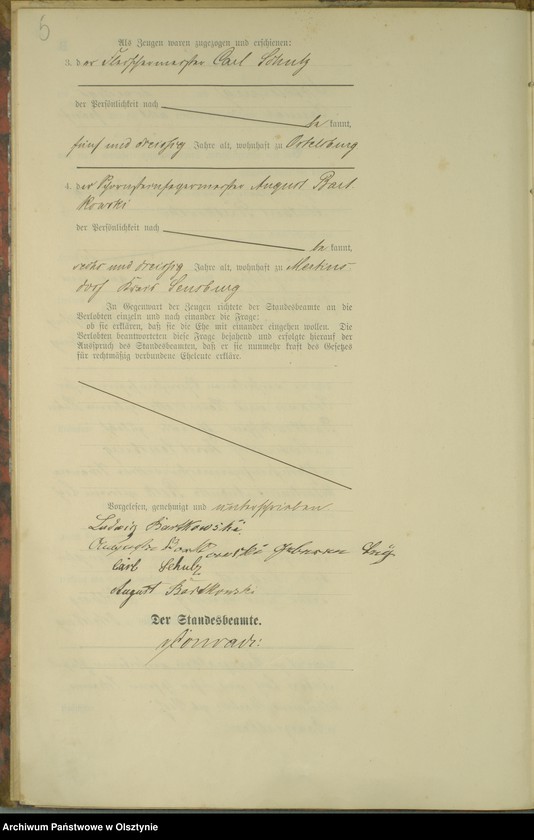 5
Als Zeugen waren zugezogen und erschienen:
3. der Fleischermeister Carl Schulz
der Persönlichkeit nach
be kannt,
fünf und dreißig Jahre alt, wohnhaft zu Ortelsburg
4. der Schornsteinfegermeister August Bart
kowski
der Persönlichkeit nach
be kannt,
sechs und dreißig Jahre alt, wohnhaft zu
dorf Kreis Sensburg
In Gegenwart der Zeugen richtete der Standesbeamte an die
Verlobten einzeln und nach einander die Frage:
ob sie erklären, daß sie die Ehe mit einander eingehen wollen. Die
Verlobten beantworteten diese Frage bejahend und erfolgte hierauf der
Ausspruch des Standesbeamten, daß er sie nunmehr kraft des Gesetzes
für rechtmäßig verbundene Eheleute erkläre.
Vorgelesen, genehmigt und unterschrieben
Ludwig Bartkowski
Auguste Bartkowski geborene
Carl Schulz
August Bartkowski
Der Standesbeamte.
Archiwum Państwowe w Olsztynie